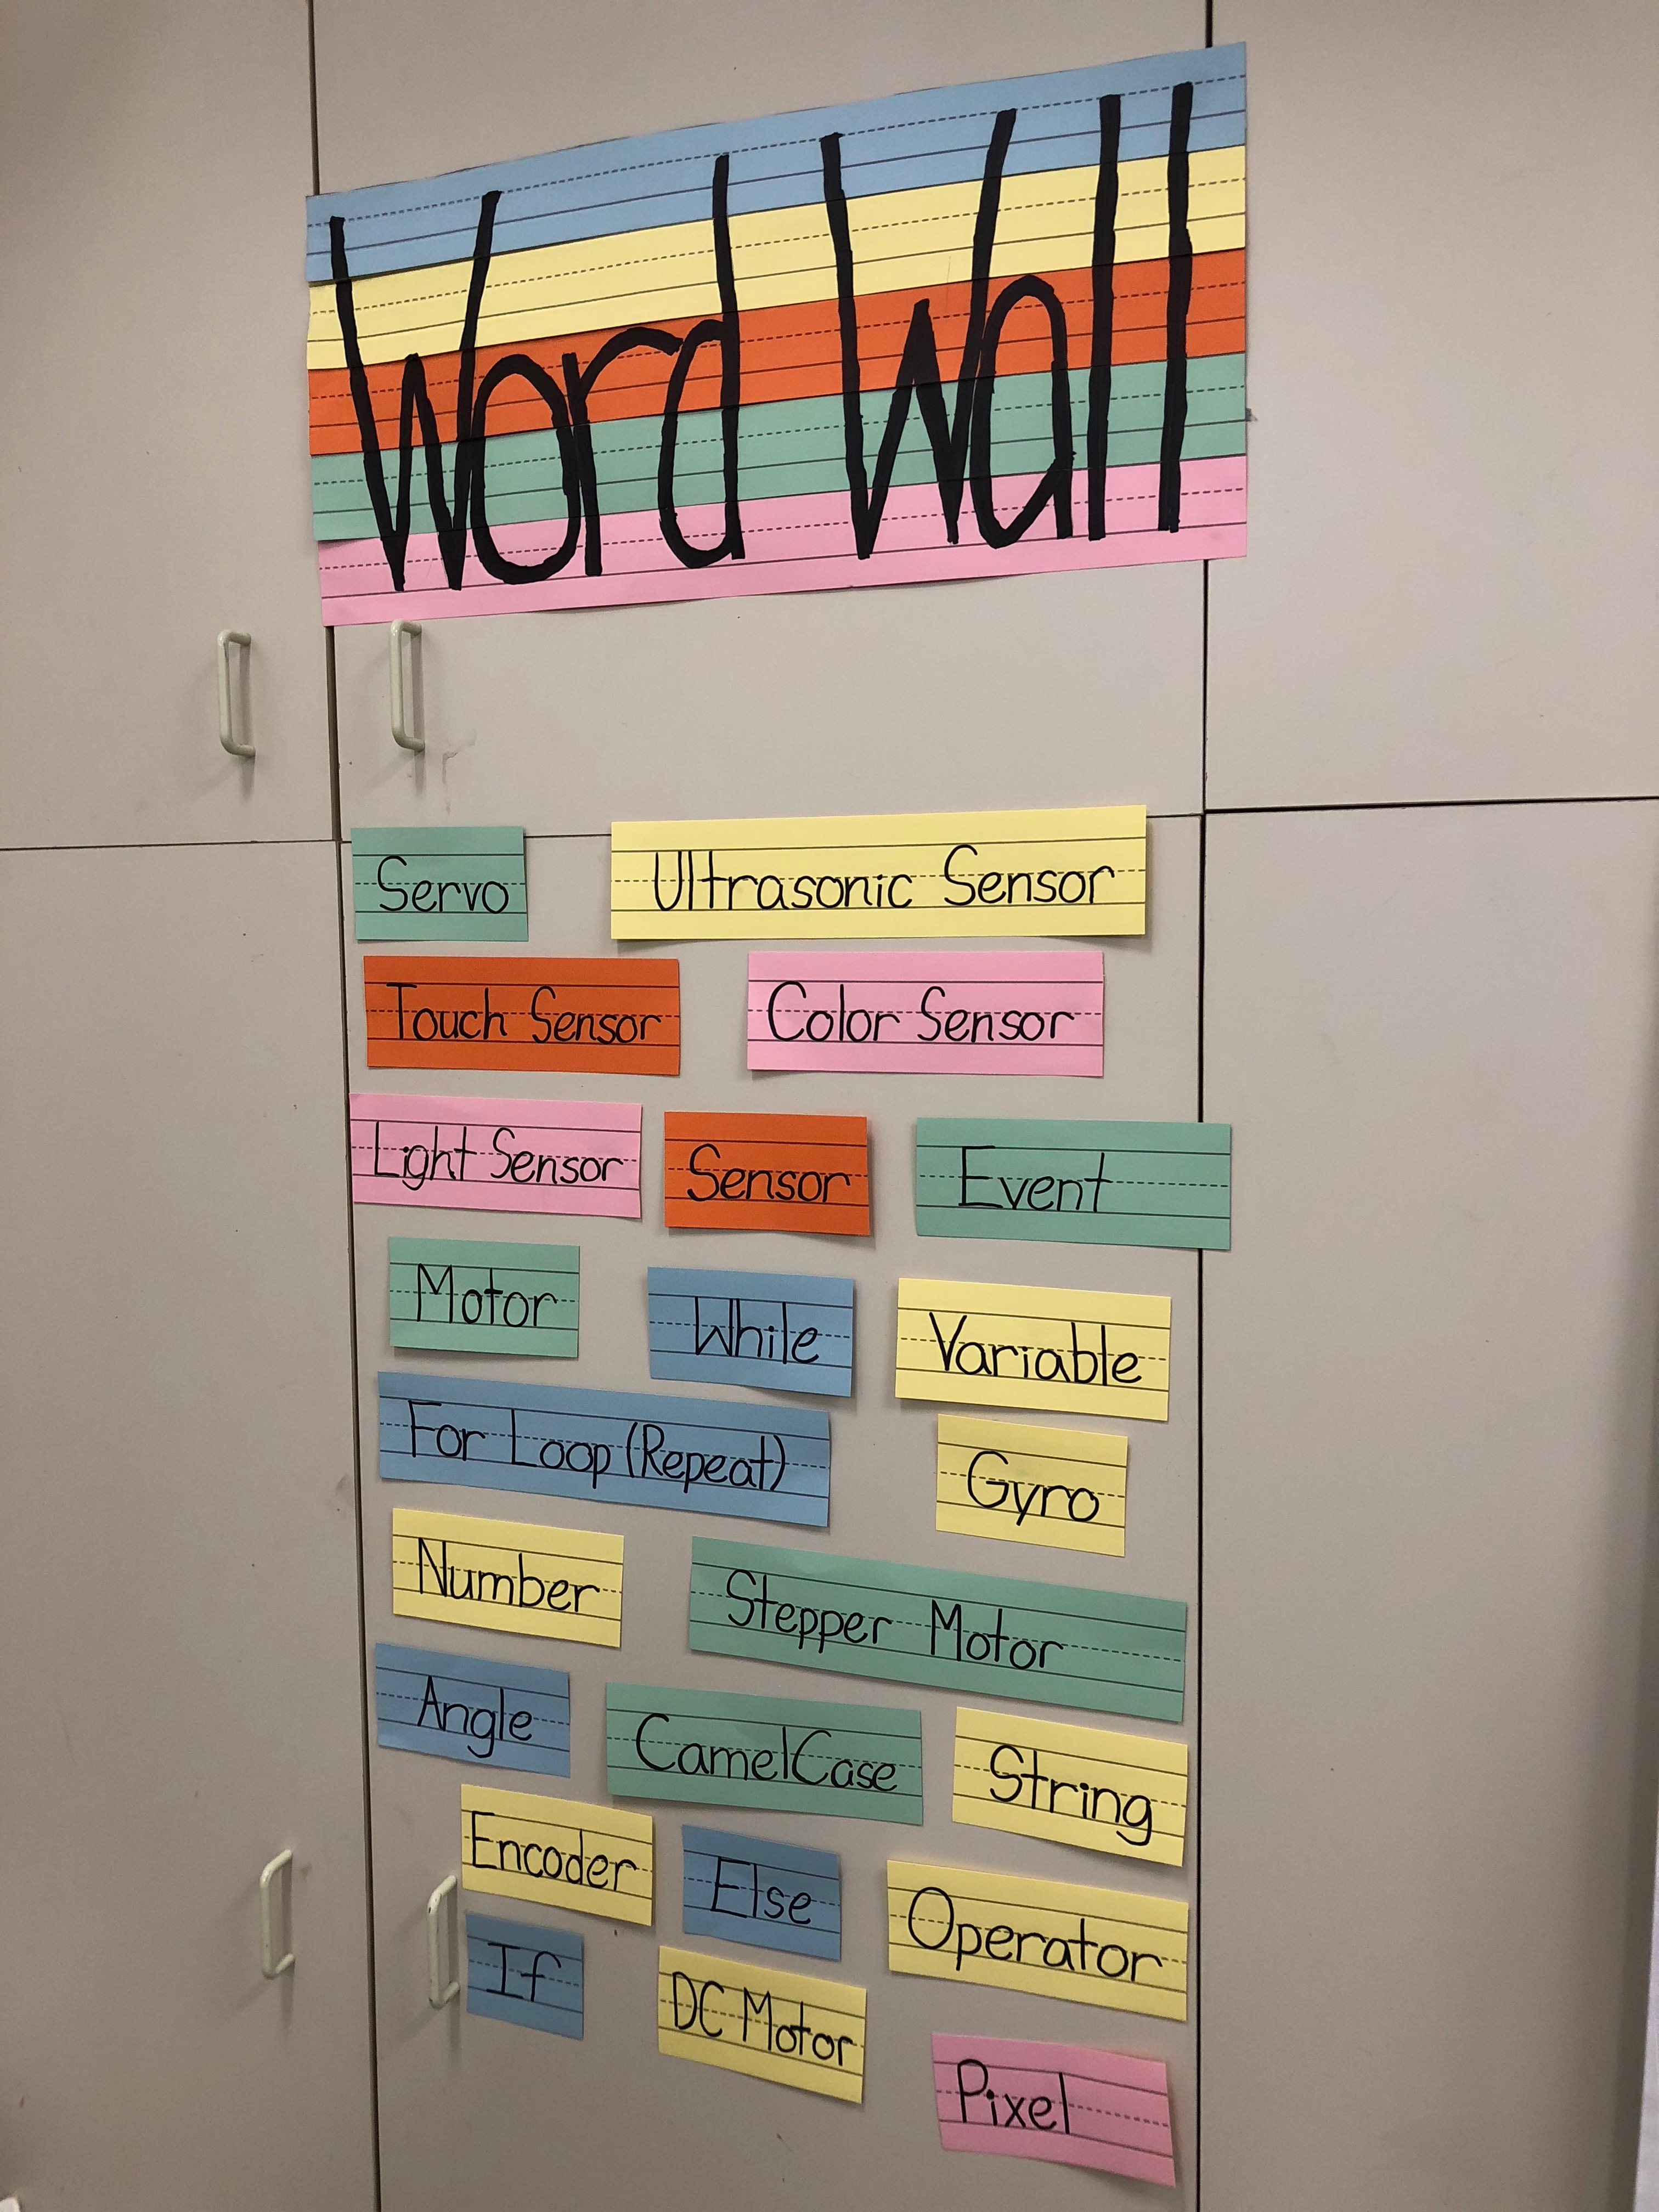 Word Wall
Servo
Ultrasonic Sensor
Touch Sensor
Color Sensor
Light Sensor
Sensor
Event
Motor
While
Variable
For Loop (Repeat)
Gyro
Number
Stepper Motor
Angle
CamelCase
String
Encoder
Else
Operator
If
DC Motor
Pixel